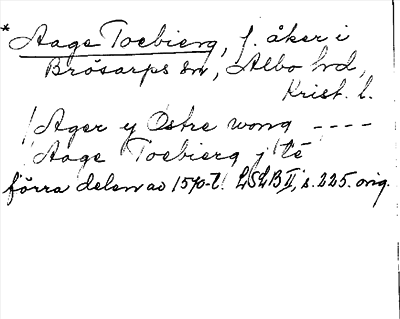 * Aage Toebierg, f. åker i
Brösarps sn, Albo hd,
Krist. l.
/ Ager y Østre wong ----
/ Aage Toebierg j té
förra delen av 1570-t. LSLB II, s. 225. orig.